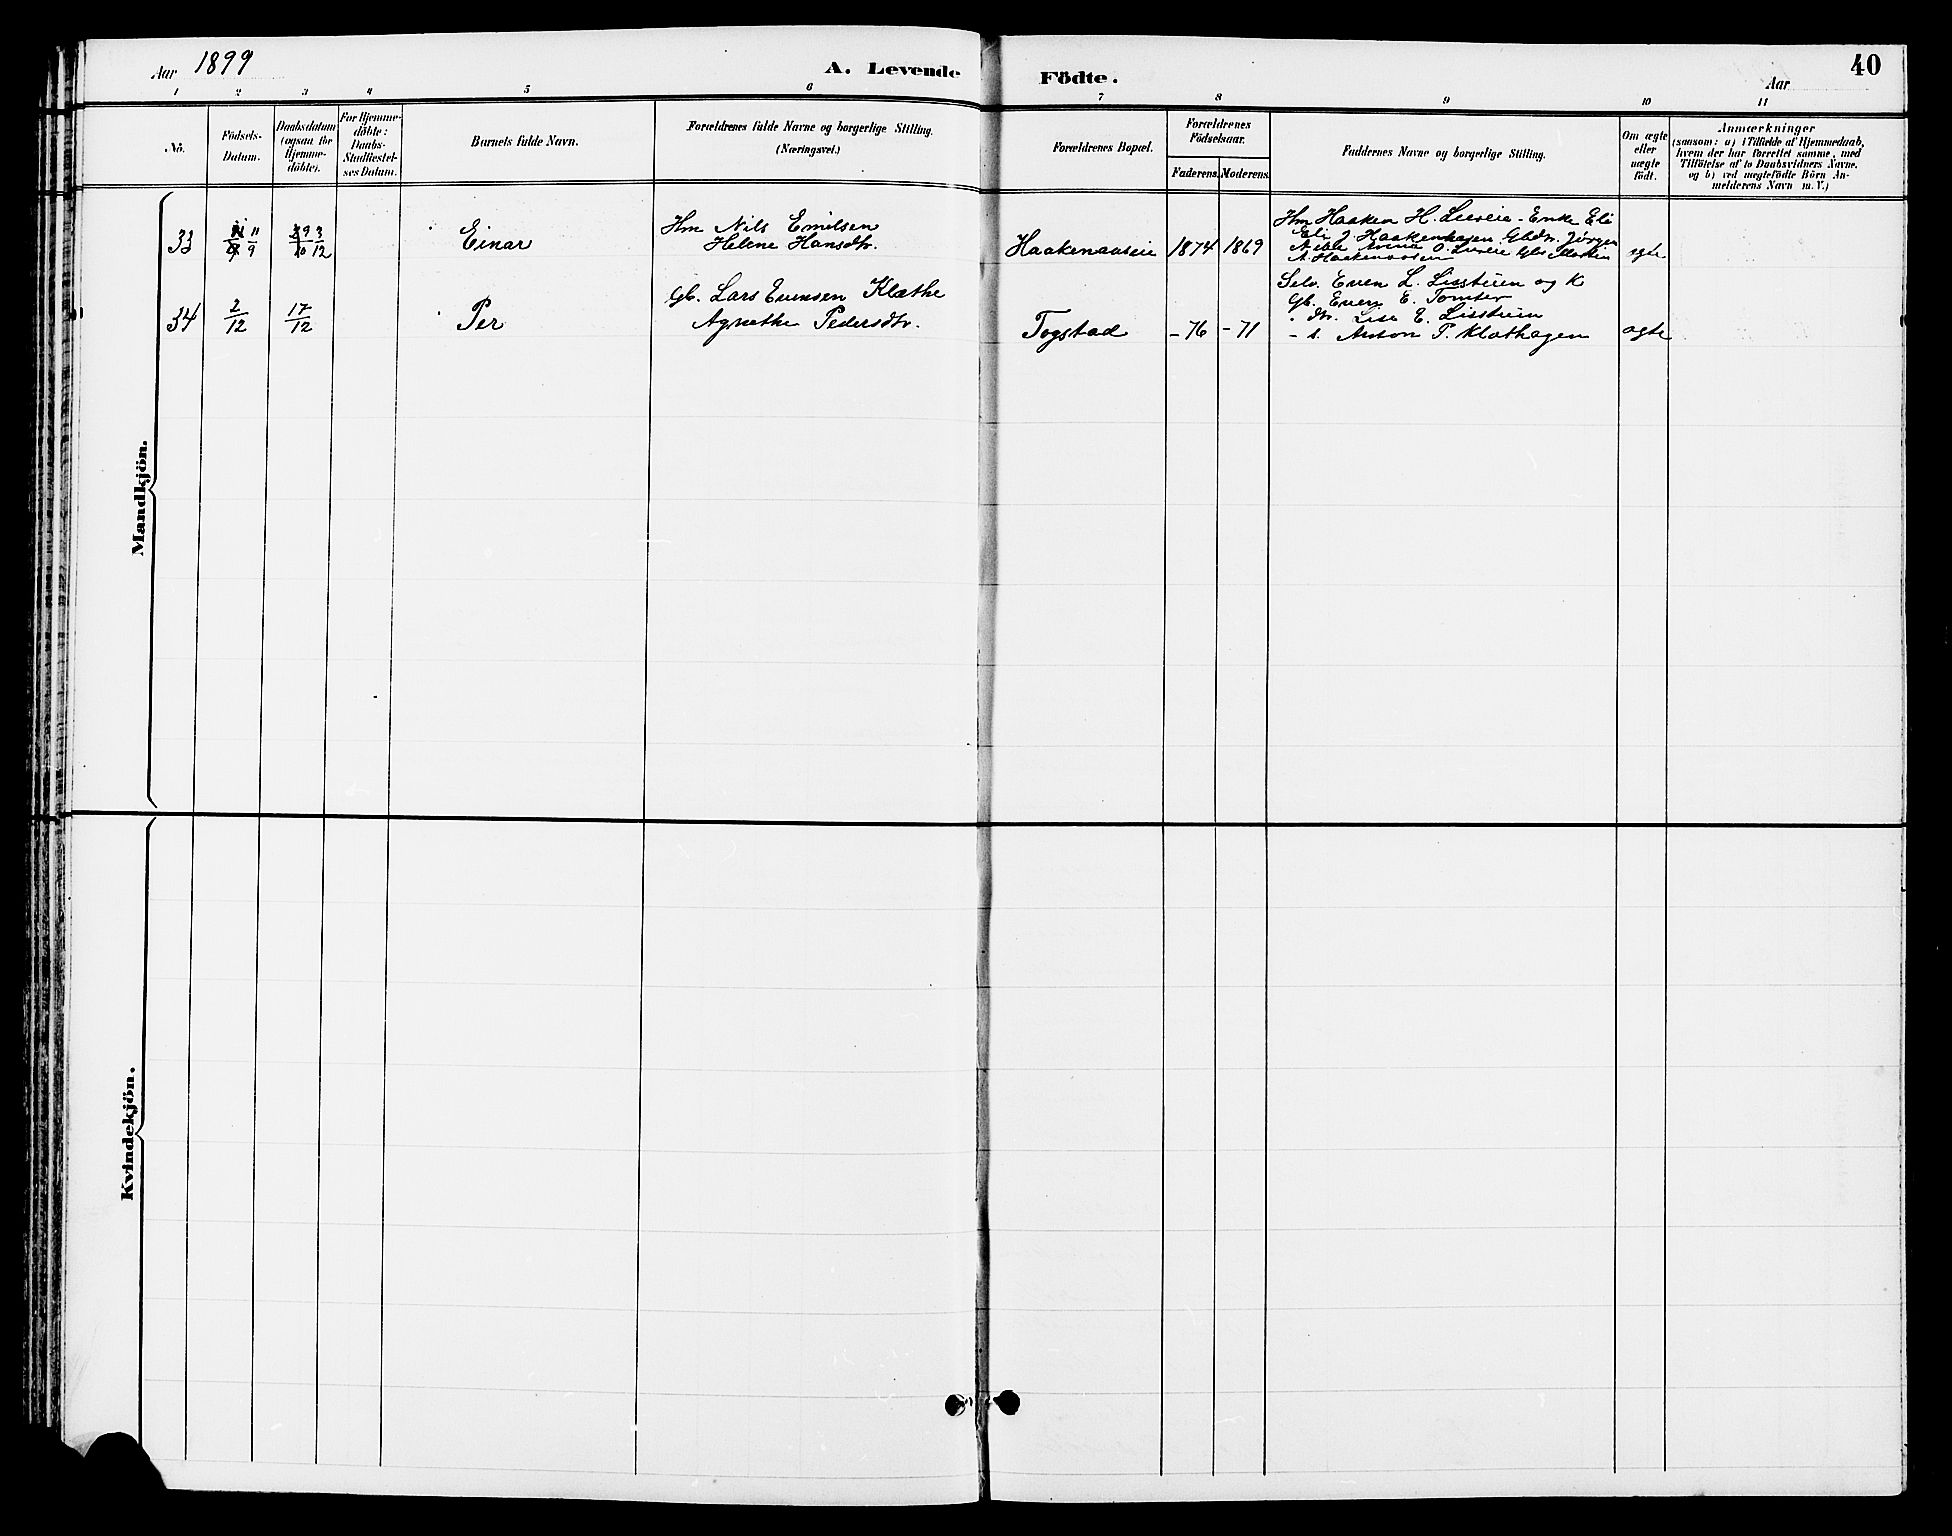 Aar 1899
A. Levende Födte.
Aar
40
1 2 3 4 5 6 7 8 9 10 11
No.
Födsels-
Datum.
Daabsdatum
(ogsaa for
Hjemme-
döbte).
For Hjemme-
döbte:
Daabs-
Stadfæstel-
ses Datum.
Barnets fulde Navn.
Forældrenes fulde Navne og borgerlige Stilling.
(Næringsvei.)
Forældrenes Bopæl.
Forældrenes
Födselsaar.
Faderens. Moderens.
Faddernes Navne og borgerlige Stilling.
Om ægte
eller
uægte
födt.
Anmærkninger
(saasom: a) i Tilfælde af Hjemmedaab,
hvem der har forrettet samme, med
Tilföielse af to Daabsvidners Navne,
og b) ved uægtefödte Börn An-
melderens Navn m. V.)
Mandkjön.
33
11/9
3/12
Einar
Hm Nils Emilsen
Helene Hansdtr.
Haakenaaseie
1874
1869
Hm Haaken H. Lieeie - Enke Eli
Eli J. Haakenhagen Gbdtr. Jørgen
Anna O. Lieeie Gbs
A. Haakenaasen
egte
34
2/12
17/12
Per
Gb. Lars Evensen Klæthe
Agnethe Pedersdtr.
Togstad
- 76
- 71
Selv. Even L. Lisstuen og K
Gb. Even E. Tomter
" dtr. Lise E. Lisstuen
- s. Anton P. Klæthagen
ægte
Kvindekjön.